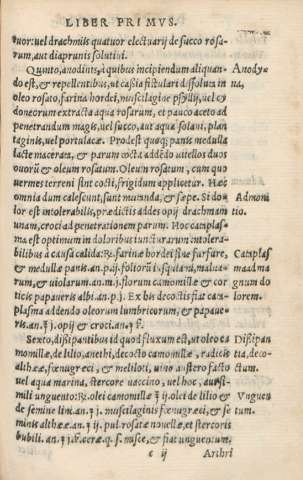 LIBER PRIMVS.
tuor: uel drachmis quatuor electuarij de succo rosa-
rum, aut diaprunis solutiui.
Quinto, anodinis, à quibus incipiendum aliquan-
do est, & repellentibus, ut cassia fistulari dissoluta in
oleo rosato, farina hordei, muscilagine psyllij, uel e-
doneorum extracta aqua rosarum, et pauco aceto ad
penetrandum magis, uel succo, aut aqua solani, plan
taginis, uel portulacæ. Prodest quoq; panis medulla
lacte macerata, & parum cocta addẽdo uitellos duos
ouorũ & oleum rosatum. Oleum rosatum, cum quo
uermes terreni sint cocti, frigidum applicetur. Hæc
omnia dum calescunt, sunt mutanda, & sæpe. Si do-
lor est intolerabilis, prædictis addes opij drachmam
unam, croci ad penetrationem parum. Hoc cataplas-
ma est optimum in doloribus iuncturarum intolera-
bilibus à causa calida: ℞. farinæ hordei sine furfure,
& medullæ panis. an. p. ij. foliorũ iusquiami, malua-
rum, & uiolarum. an. m. j. florum camomillæ & cor
ticis papaueris albi. an. p. j. Ex his decoctis fiat cata-
plasma addendo oleorum lumbricorum, & papaue-
ris. an. ℥ j. opij & croci. an. ʒ ß.
Sexto, dissipantibus id quod fluxum est, ut oleo ca
momillæ, de lilio, anethi, decocto camomillæ, radicis
altheæ, fœnugræci, & meliloti, uino austero facto
uel aqua marina, stercore uaccino, uel hoc, aut si-
mili unguento: ℞. olei camomillæ ℥ ij. olei de lilio &
de semine lini. an. ℥ j. muscilaginis fœnugræci, & se
minis altheæ. an. ℥ ij. pul. rosatæ nouellæ, et stercoris
bubili. an. ℥ j. ß. ceræ. q. s. misce, & fiat unguentum.
c ij Arthri
Anody-
na,
Admoni
tio.
Cataplas-
ma ad ma
gnum do
lorem.
Dissipan
tia, deco-
ctum.
Vnguen
tum.